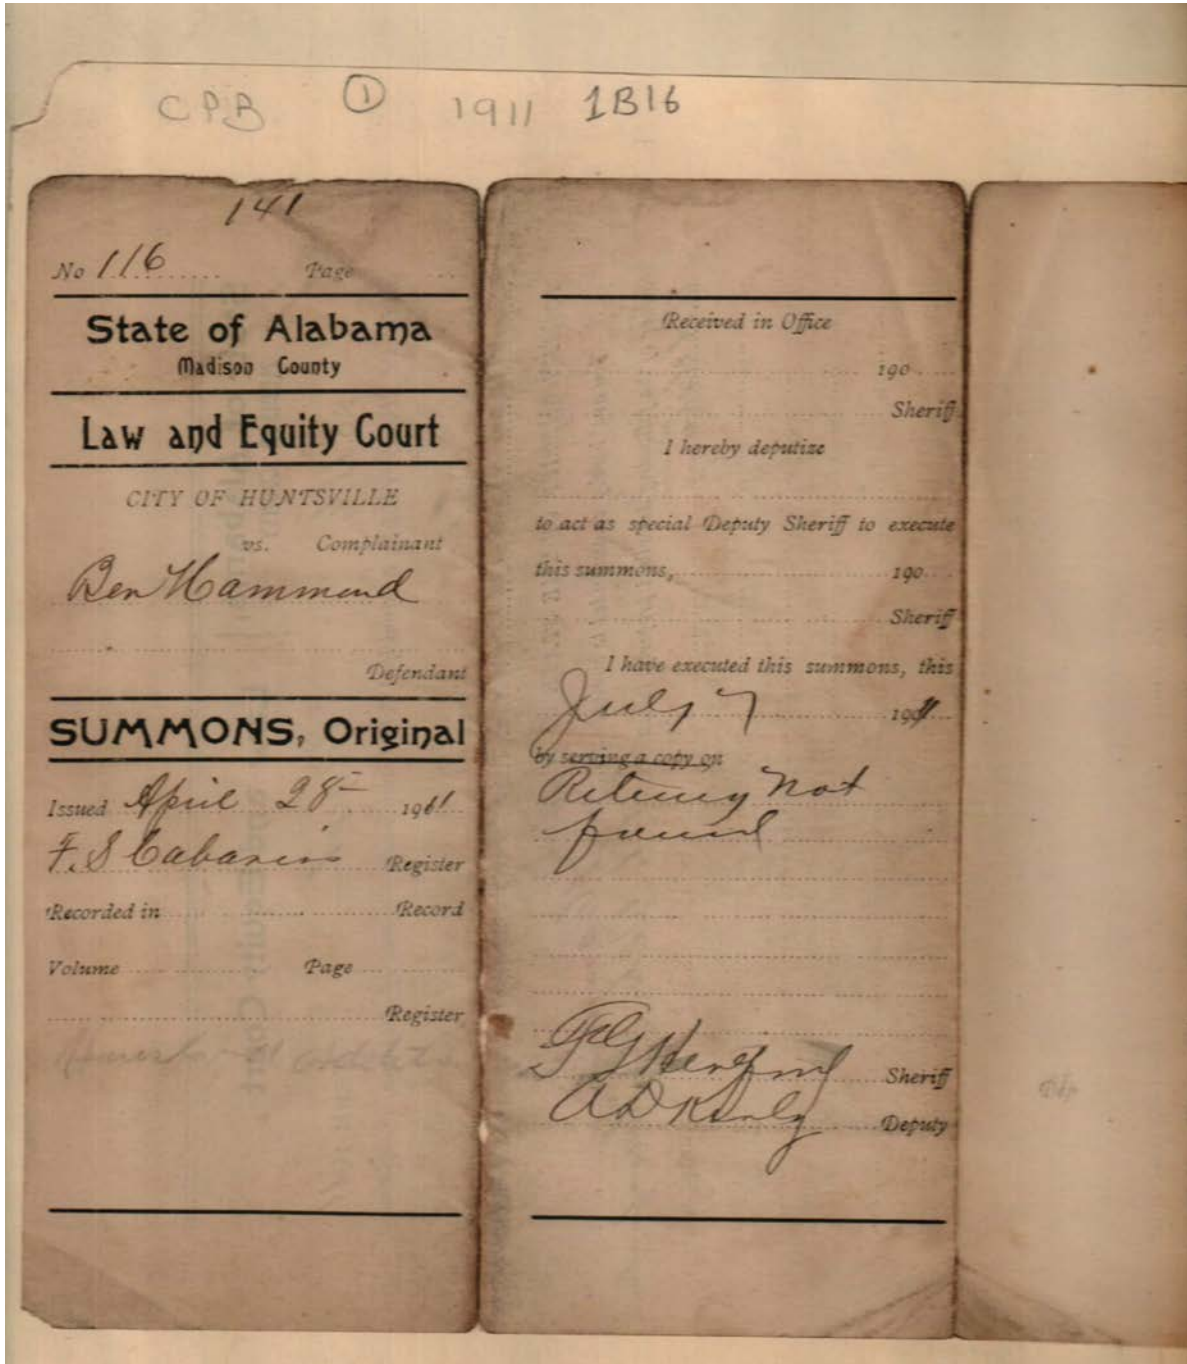 CPB ① 1911 1B16
141
No 116 Page
State of Alabama
Madison County
Law and Equity Court
CITY OF HUNTSVILLE
vs. Complainant
Ben Hammond
Defendant
SUMMONS, Original
Issued April 28 1911
F. S. Register
Recorded in Record
Volume Page
Register
Received in Office
190
Sheriff
I hereby deputize
to act as special Deputy Sheriff to execute
this summons, 190
Sheriff
I have executed this summons, this
July 7 1911
by serving a copy on
not
found
Sheriff
A D Deputy